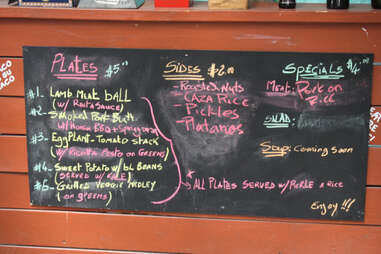 PLATES $5.00
#1. LAMB MEAT BALL
(W/ RAITA SAUCE)
#2- SMOKED PORK BUTT
W/ HOUSE BBQ +
#3. EGGPLANT-TOMATO STACK
(W/ RICOTTA PESTO ON GREENS)
#4- SWEET POTATO W/ BL BEANS
(SERVED W/ KALE)
#5- GRILLED VEGGIE MEDLEY
(ON GREENS)
SIDES $2.00
- ROASTED NUTS
- RICE
- PICKLES
- PLATANOS
* ALL PLATES SERVED W/ PICKLE & RICE
SPECIALS $4.00
MEAT: PORK ON
RICE
SALAD:
SOUP: COMING SOON
ENJOY!!!